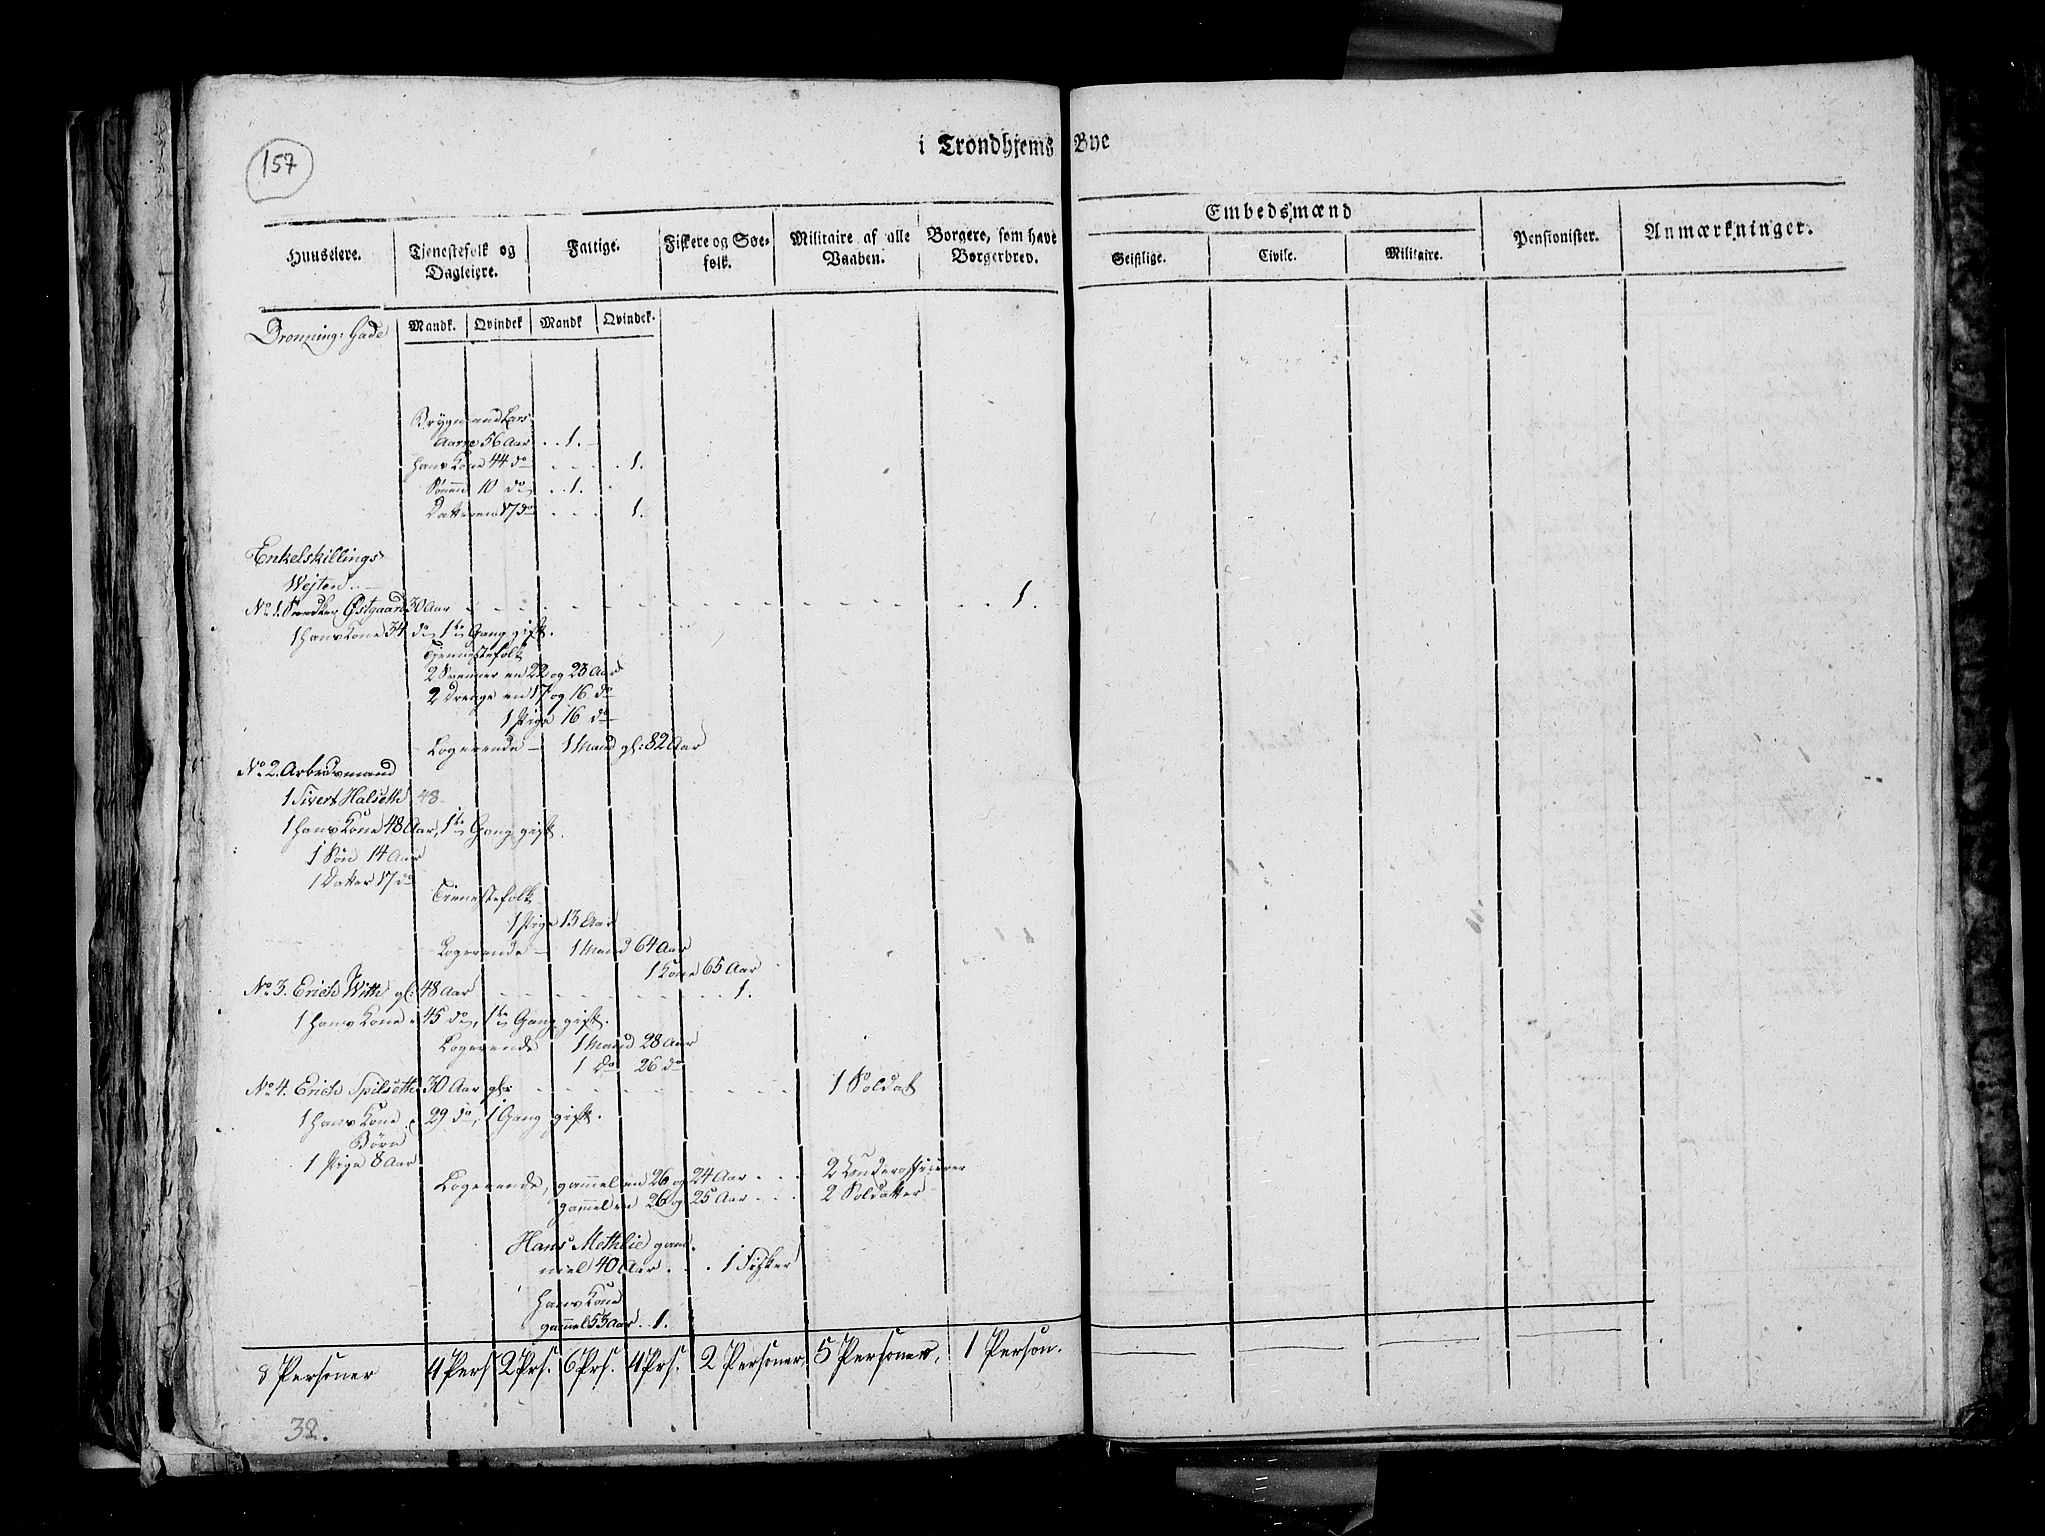 157
i Trondhjems Bye
Huuseiere.
Tjenestefolk og Dagleiere.
Fattige.
Fiskere og Søefolk.
Militaire af alle Vaaben.
Borgere, som have Borgerbrev.
Embedsmænd
Geistlige.
Civile.
Militaire.
Pensionister.
Anmærkninger.
Mandk. Qvindek Mandk Qvindek.
Dronning: Gade
Brygmand Lars
Aarre 56 Aar . . 1.
hans Kone 44 do . . . . 1.
Sønnen 10 do . . 1.
Datteren 17 do . . . 1.
Enkelskillings
Vejten
No 1. Snedker Østgaard 30 Aar 1.
1 hans Kone 34 do, 1te Gang gift.
Tjennestefolk
2 Svenner en 22 og 23 Aar
2 Drenge en 17 og 16 do
1 Pige 16 do
Logerende - 1 Mand gl: 82 Aar
No 2. Arbedsmand
1 Sivert Halseth 48
1 hans Kone 48 Aar, 1te Gang gift.
1 Søn 14 Aar
1 Datter 17 do
Tienestefolk
1 Pige 13 Aar
Logerende - 1 Mand 64 Aar
1 Kone 65 Aar
No 3. Erich With gl: 48 Aar 1.
1 hans Kone 45 do, 1te Gang gift.
Logerende 1 Mand 28 Aar
1 do 26 do
No 4. Erich Spilseth 30 Aar gl: 1 Soldat
1 hans Kone 29 do, 1 Gang gift.
Børn
1 Pige 8 Aar
Logerende, gammel en 26 og 24 Aar . . . 2 Underofficerer
gammel en 26 og 25 Aar . . . 2 Soldatter
Hans Methlie gam-
mel 40 Aar . . . 1 Fisker
hans Kone
gammel 53 Aar . . 1.
8 Personer 4 Pers 2 Prs. 6 Prs. 4 Prs. 2 Personer, 5 Personer, 1 Person.
32.